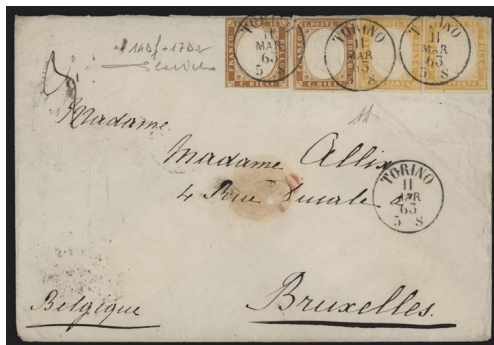 TORINO
11
MAR
63
5 S
TORINO
11
MAR
63
5 S
TORINO
11
MAR
63
5 S
C. DIECI
C. DIECI
Madame
Madame Allix
4 Rue Ducale
TORINO
11
MAR
63
5 S
Belgique
Bruxelles.